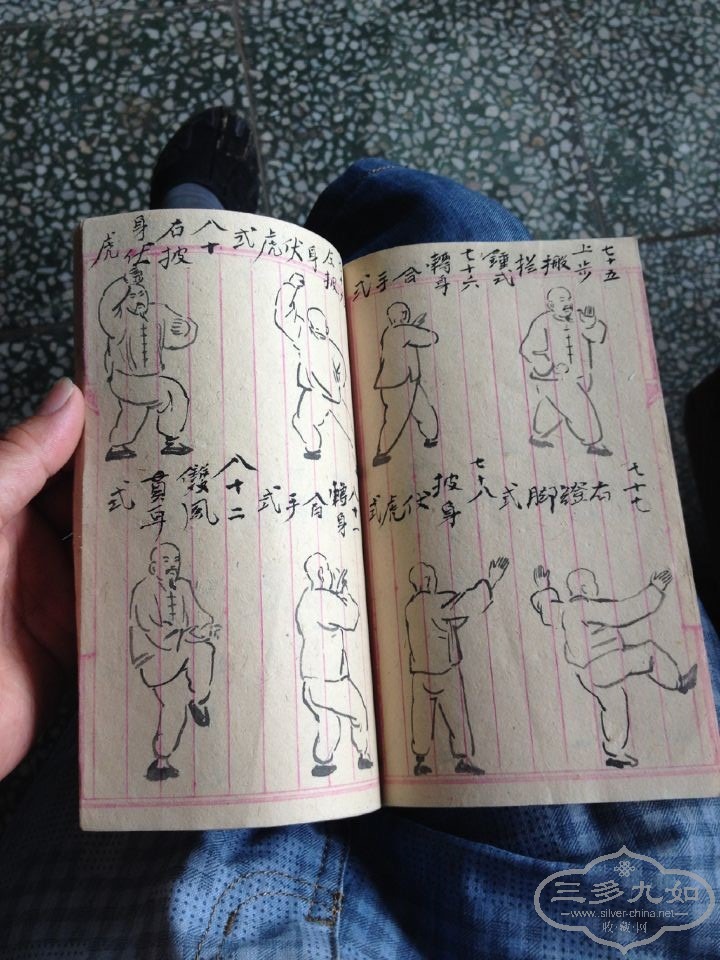 七十五 上步搬拦錘式
七十六 轉身合手式
七十七 右蹬脚式
七十八 披身伏虎式
左披身伏虎式
八十 右披身伏虎
八十一 轉身合手式
八十二 雙風貫耳式
三多九如
www.silver-china.net
收藏网